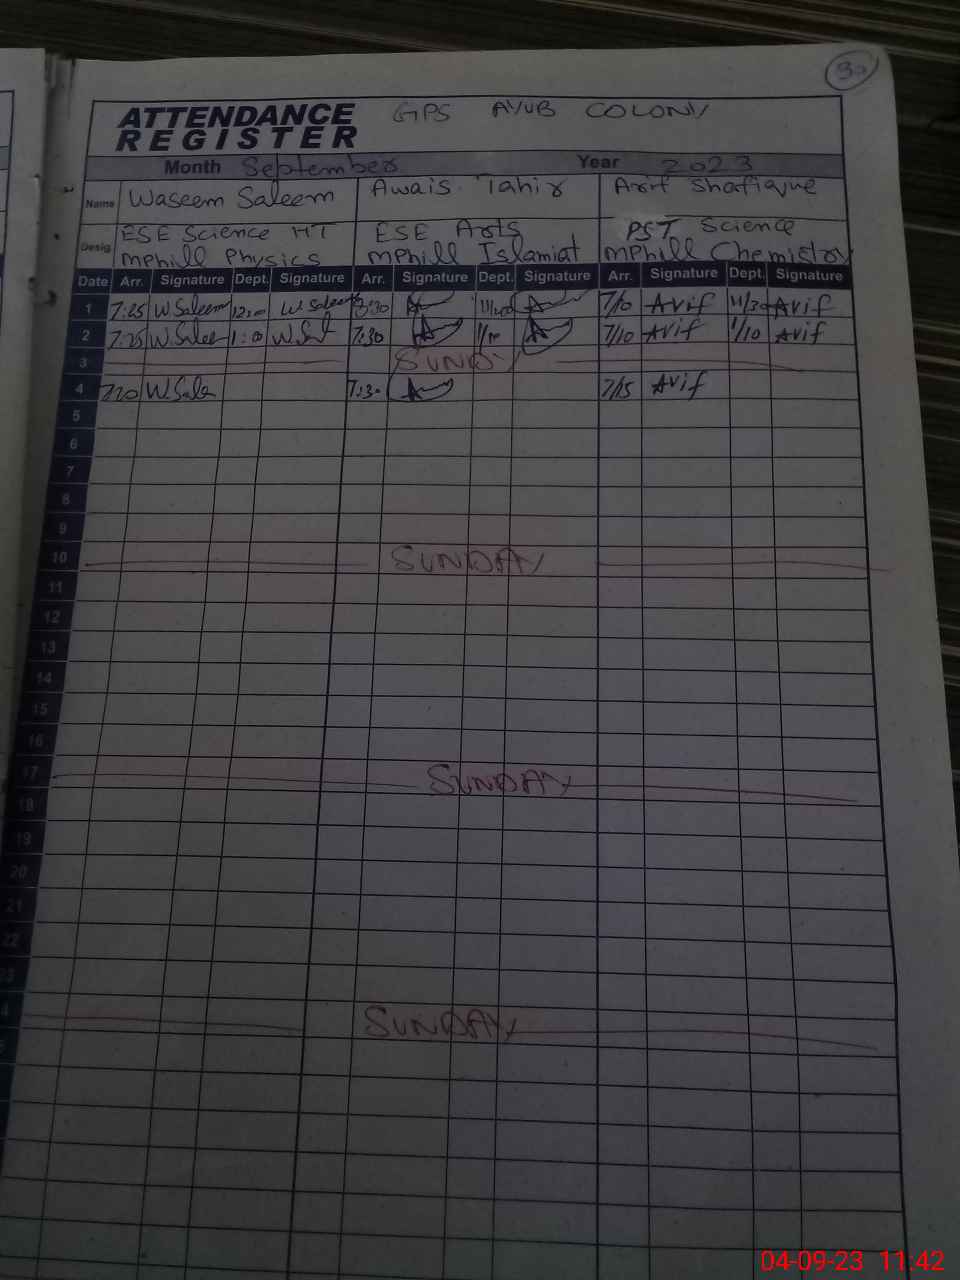 30
ATTENDANCE REGISTER GPS AYUB COLONY
Month September Year 2023
Name Waseem Saleem Awais Tahir Arif Shafique
Desig. ESE Science HT ESE Arts PST Science
Mphill Physics Mphill Islamiat Mphill Chemistry
Date Arr. Signature Dept. Signature Arr. Signature Dept. Signature Arr. Signature Dept. Signature
1 7:25 W.Saleem 12:0 W.Saleem 7/10 Arif 11/30 Arif
2 7:25 W.Saleem 1:0 W.Sal 7:30 1/10 7/10 Arif 1/10 Arif
3 SUNDY
4 7:20 W.Sale 7:30 7/15 Arif
5
6
7
8
9
10 SUNDAY
11
12
13
14
15
16
17 SUNDAY
18
19
20
21
22
23
4 SUNDAY
04-09-23 11:42